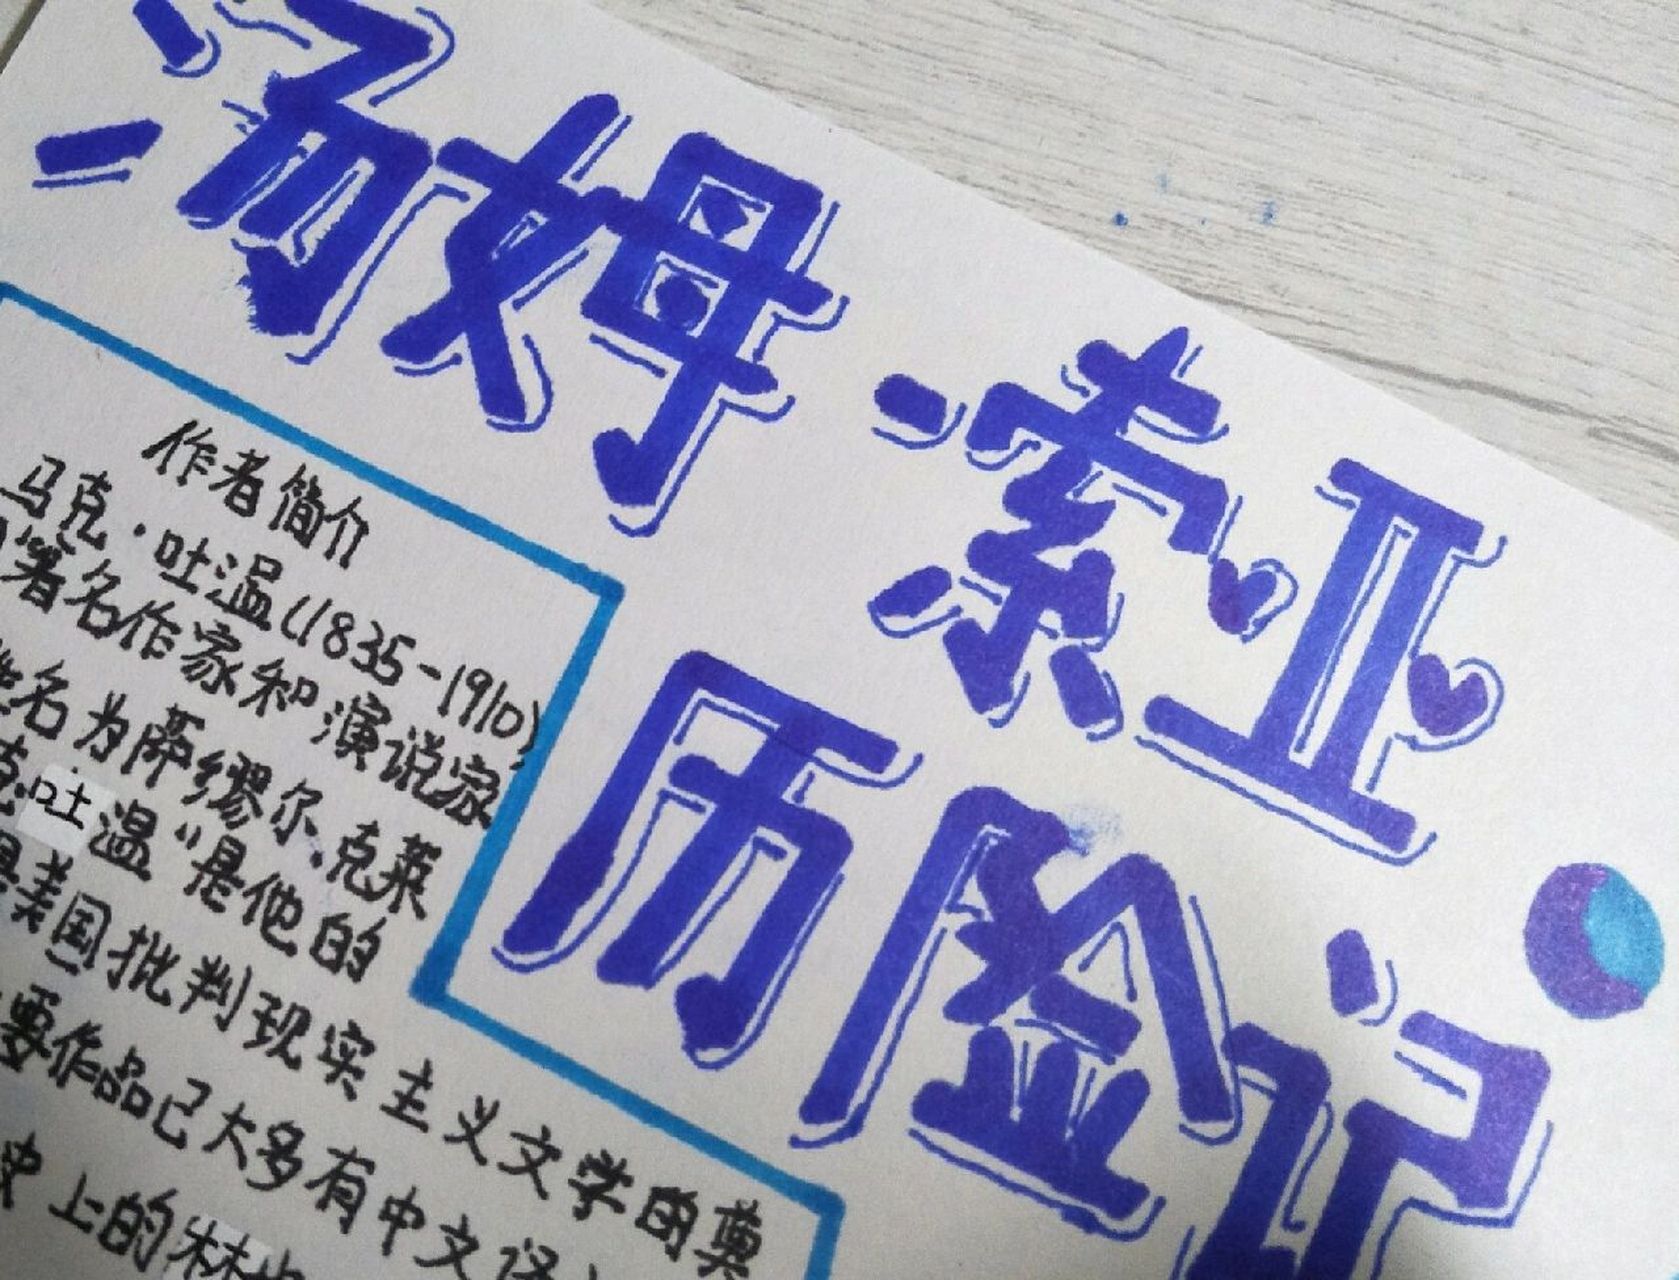 汤姆·索亚
历险记
作者简介
马克·吐温(1835-1910)
著名作家和演说家,
名为萨缪尔.克莱
吐温"是他的
是美国批判现实主义文学的奠
要作品已大多有中文译
史上的林